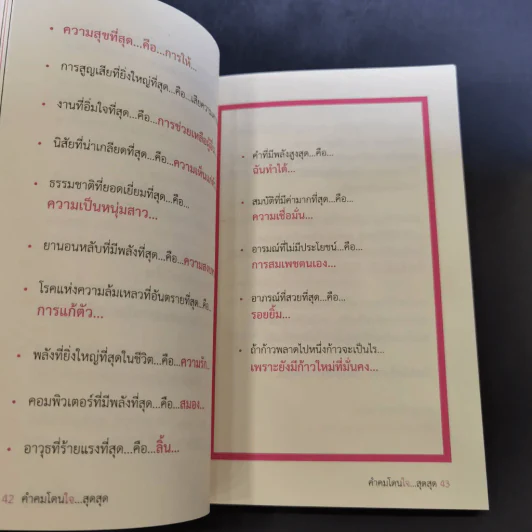 • ความสุขที่สุด...คือ...การให้...
• การสูญเสียที่ยิ่งใหญ่ที่สุด...คือ...
• งานที่อิ่มใจที่สุด...คือ...การช่วยเหลือ
• นิสัยที่น่าเกลียดที่สุด...คือ...
• ธรรมชาติที่ยอดเยี่ยมที่สุด...คือ...
ความเป็นหนุ่มสาว...
• ยานอนหลับที่มีพลังที่สุด...คือ...
• โรคแห่งความล้มเหลวที่อันตรายที่สุด...คือ...
การแก้ตัว...
• พลังที่ยิ่งใหญ่ที่สุดในชีวิต...คือ...ความรัก...
• คอมพิวเตอร์ที่มีพลังที่สุด...คือ...สมอง...
• อาวุธที่ร้ายแรงที่สุด...คือ...ลิ้น...
42 คำคมโดนใจ...สุดสุด
• คำที่มีพลังสูงสุด...คือ...
ฉันทำได้...
• สมบัติที่มีค่ามากที่สุด...คือ...
ความเชื่อมั่น...
• อารมณ์ที่ไม่มีประโยชน์...คือ...
การสมเพชตนเอง...
• อาภรณ์ที่สวยที่สุด...คือ...
รอยยิ้ม...
• ถ้าก้าวพลาดไปหนึ่งก้าวจะเป็นไร...
เพราะยังมีก้าวใหม่ที่มั่นคง...
คำคมโดนใจ...สุดสุด 43